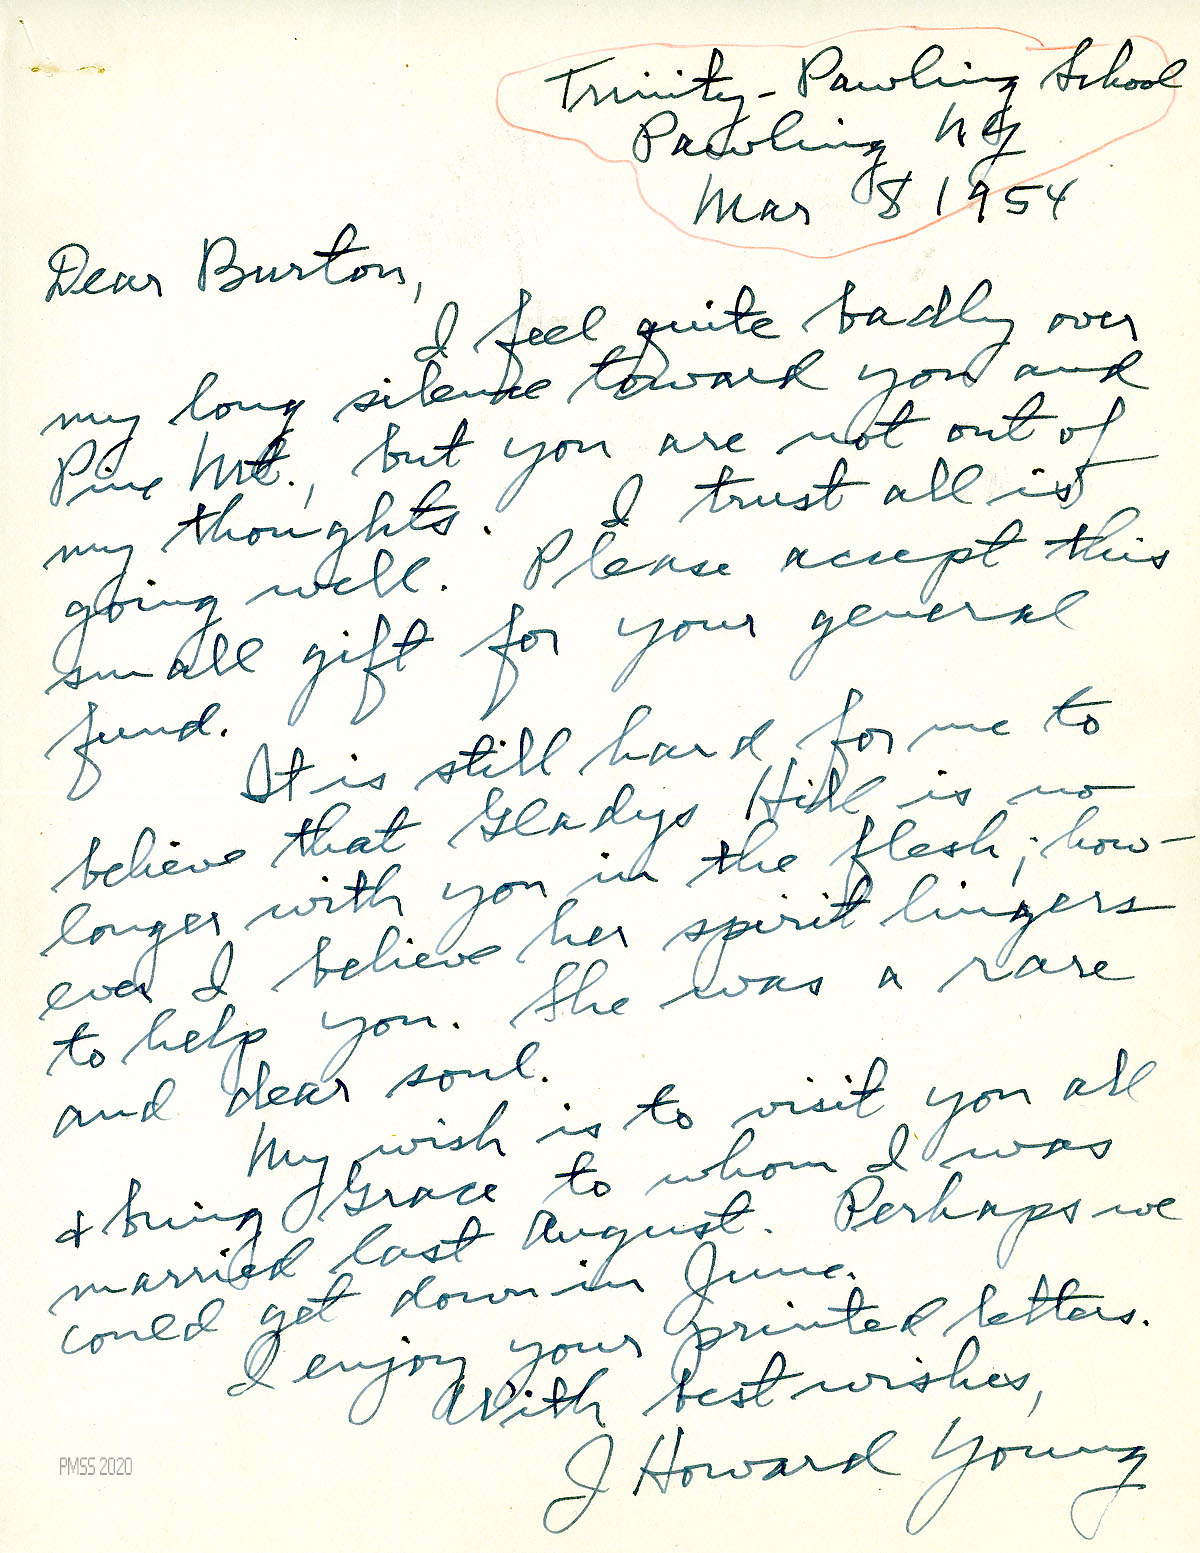 Trinity-Pawling School
Pawling NY
Mar 8 1954
Dear Burton,
I feel quite badly over
my long silence toward you and
Pine Mt., but you are not out of
my thoughts. I trust all is
going well. Please accept this
small gift for your general
fund.
It is still hard for me to
believe that Gladys Hill is no
longer with you in the flesh; how-
ever I believe her spirit lingers
to help you. She was a rare
and dear soul.
My wish is to visit you all
& bring Grace to whom I was
married last August. Perhaps we
could get down in June.
I enjoy your printed letters.
With best wishes,
J Howard Young
PMSS 2020